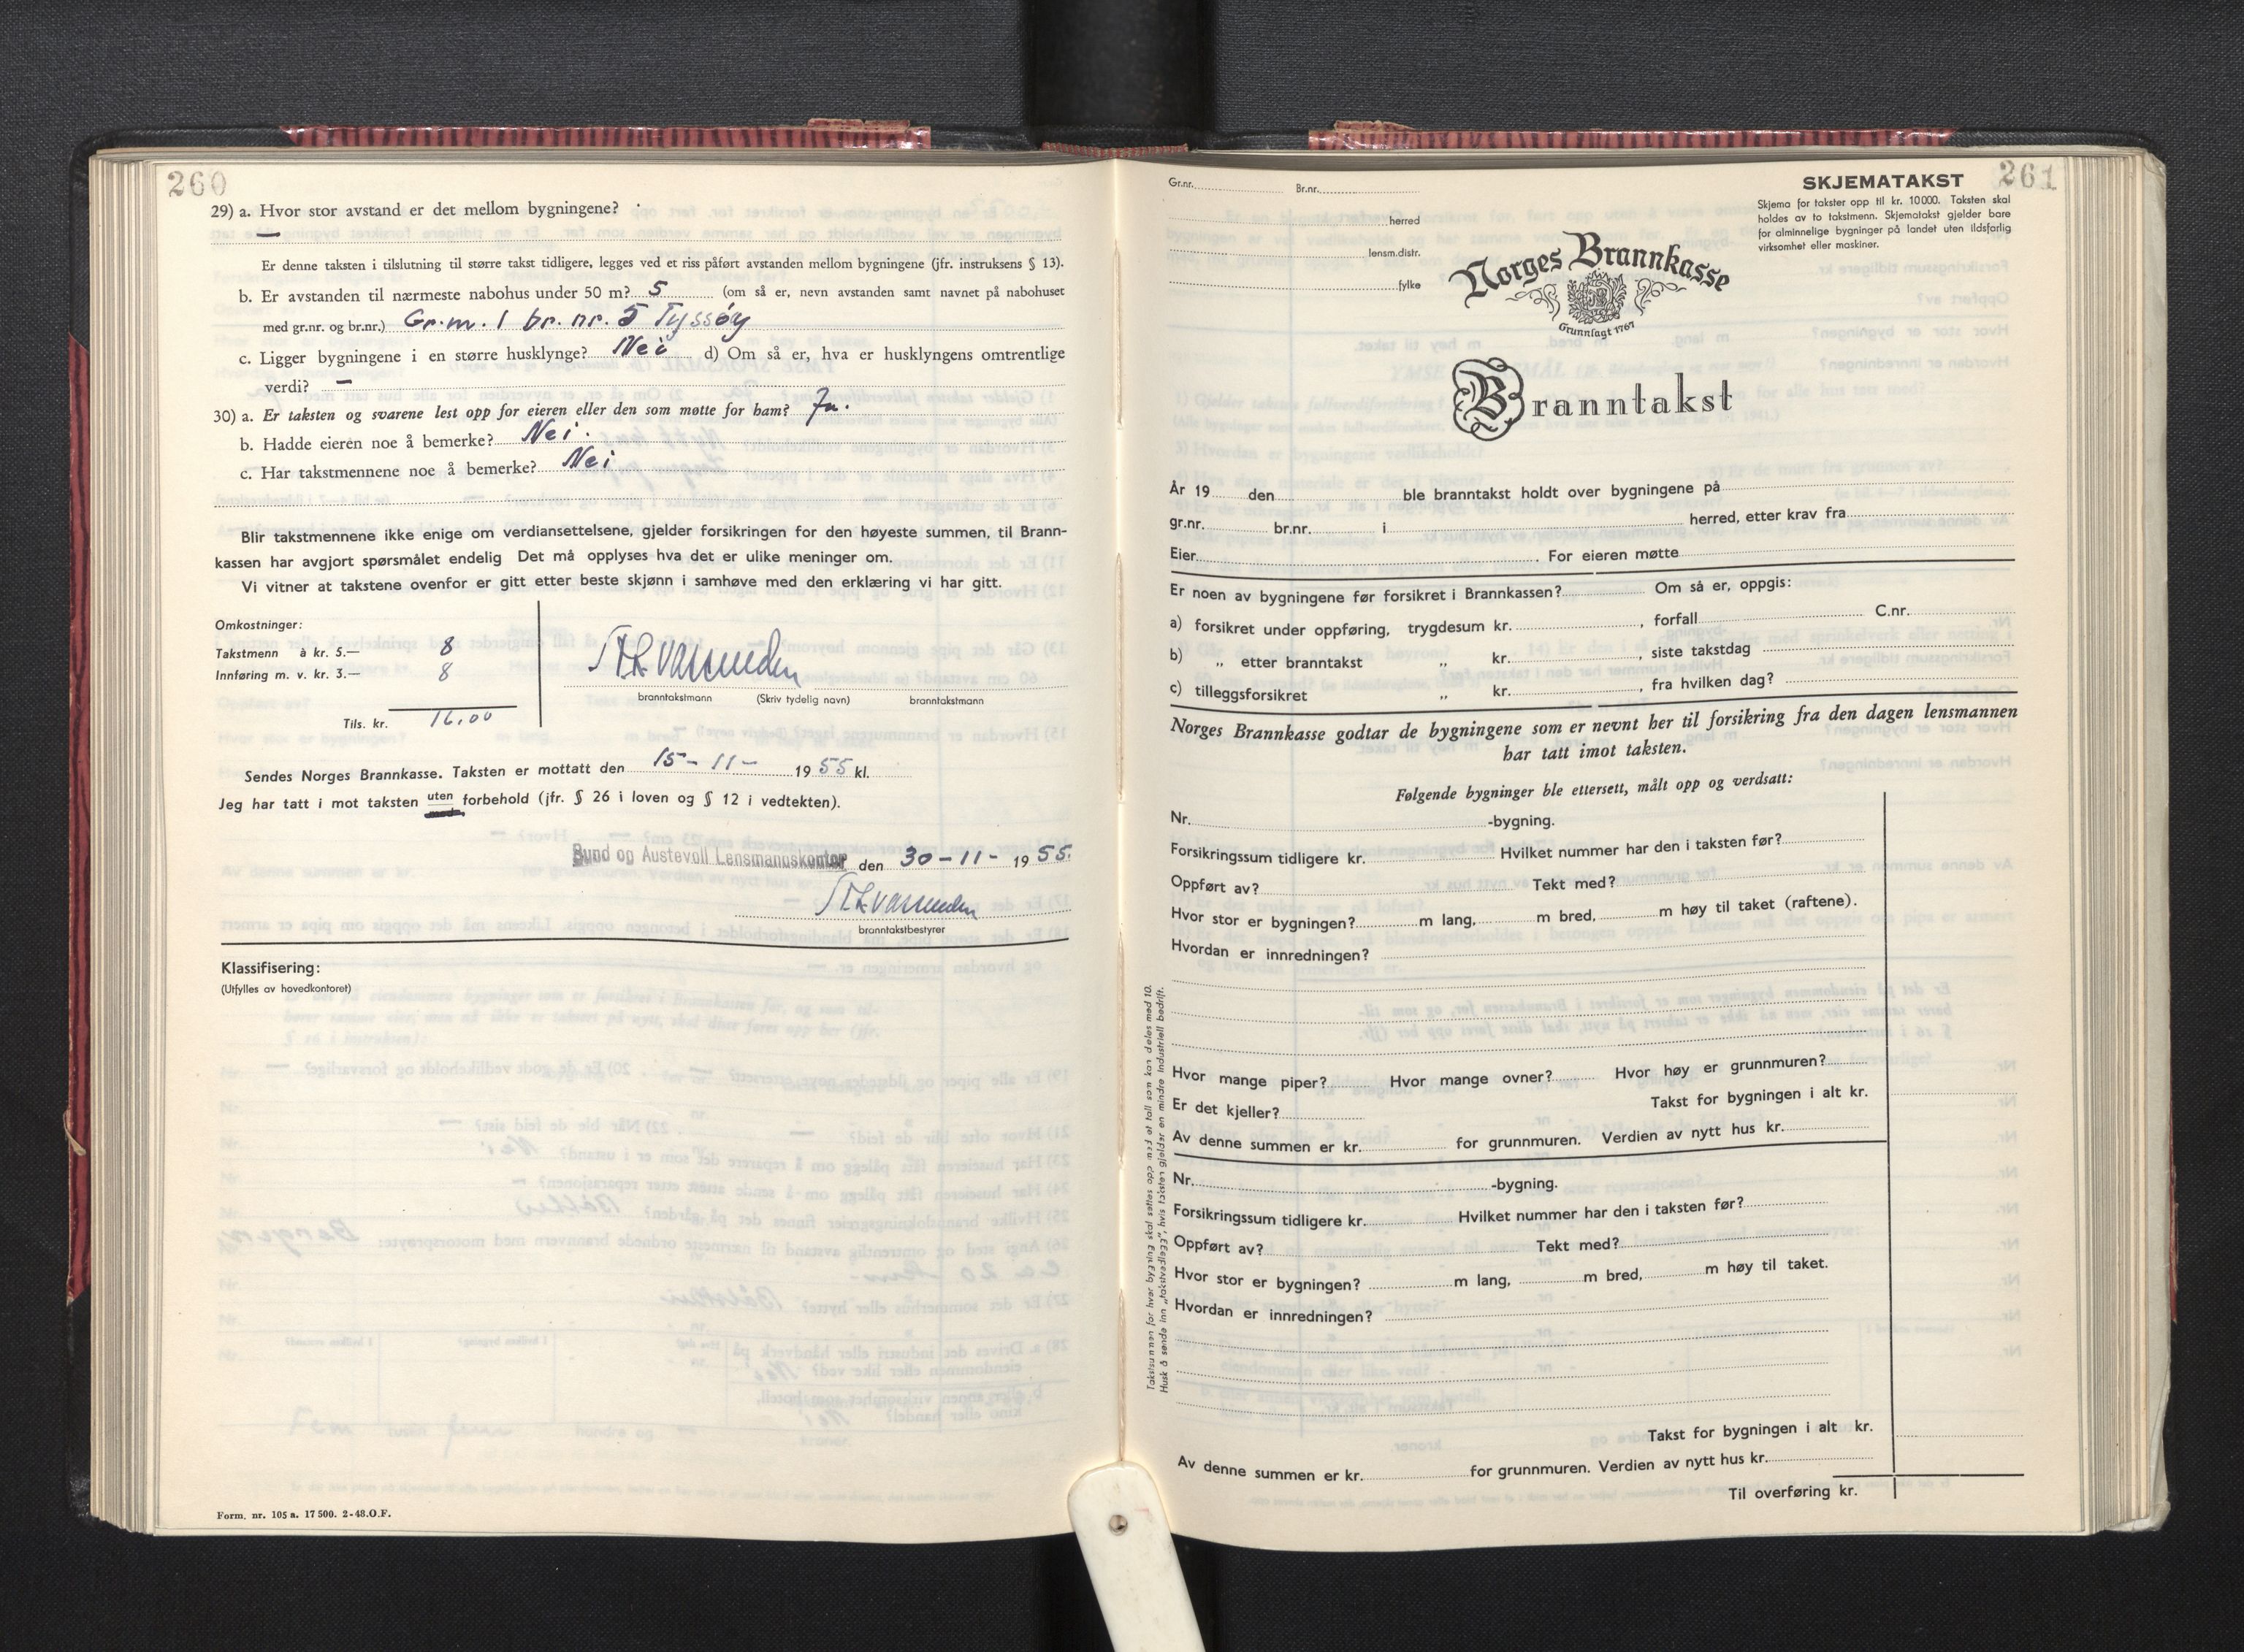 260
29) a. Hvor stor avstand er det mellom bygningene?
—
Er denne taksten i tilslutning til større takst tidligere, legges ved et riss påført avstanden mellom bygningene (jfr. instruksens § 13).
b. Er avstanden til nærmeste nabohus under 50 m? 5 (om så er, nevn avstanden samt navnet på nabohuset
med gr.nr. og br.nr.) Gr.nr. 1 br. nr. 5 Tyssøy
c. Ligger bygningene i en større husklynge? Nei d) Om så er, hva er husklyngens omtrentlige
verdi? —
30) a. Er taksten og svarene lest opp for eieren eller den som møtte for ham? Ja.
b. Hadde eieren noe å bemerke? Nei.
c. Har takstmennene noe å bemerke? Nei
Blir takstmennene ikke enige om verdiansettelsene, gjelder forsikringen for den høyeste summen, til Brann-
kassen har avgjort spørsmålet endelig Det må opplyses hva det er ulike meninger om.
Vi vitner at takstene ovenfor er gitt etter beste skjønn i samhøve med den erklæring vi har gitt.
Omkostninger:
Takstmenn à kr. 5.— 8
Innføring m. v. kr. 3.— 8
Tils. kr. 16,00
branntakstmann (Skriv tydelig navn) branntakstmann
Sendes Norges Brannkasse. Taksten er mottatt den 15-11- 1955 kl.
Jeg har tatt i mot taksten uten forbehold (jfr. § 26 i loven og § 12 i vedtekten).
med
Sund og Austevoll Lensmannskontor den 30-11- 1955.
branntakstbestyrer
Klassifisering:
(Utfylles av hovedkontoret)
Form. nr. 105 a. 17 500. 2-48. O.F.
261
Gr.nr. Br.nr.
herred
lensm.distr.
fylke
SKJEMATAKST
Skjema for takster opp til kr. 10 000. Taksten skal
holdes av to takstmenn. Skjematakst gjelder bare
for alminnelige bygninger på landet uten ildsfarlig
virksomhet eller maskiner.
Norges Brannkasse
Grunnlagt 1767
Branntakst
År 19 den ble branntakst holdt over bygningene på
gr.nr. br.nr. i herred, etter krav fra
Eier For eieren møtte
Er noen av bygningene før forsikret i Brannkassen? Om så er, oppgis:
a) forsikret under oppføring, trygdesum kr. , forfall C.nr.
b) „ etter branntakst „ kr. , siste takstdag
c) tilleggsforsikret „ kr. , fra hvilken dag?
Norges Brannkasse godtar de bygningene som er nevnt her til forsikring fra den dagen lensmannen
har tatt imot taksten.
Følgende bygninger ble ettersett, målt opp og verdsatt:
Nr. -bygning.
Forsikringssum tidligere kr. Hvilket nummer har den i taksten før?
Oppført av? Tekt med?
Hvor stor er bygningen? m lang, m bred, m høy til taket (raftene).
Hvordan er innredningen?
Hvor mange piper? Hvor mange ovner? Hvor høy er grunnmuren?
Er det kjeller? Takst for bygningen i alt kr.
Av denne summen er kr. for grunnmuren. Verdien av nytt hus kr.
Nr. -bygning.
Forsikringssum tidligere kr. Hvilket nummer har den i taksten før?
Oppført av? Tekt med?
Hvor stor er bygningen? m lang, m bred, m høy til taket.
Hvordan er innredningen?
Takst for bygningen i alt kr.
Av denne summen er kr. for grunnmuren. Verdien av nytt hus kr.
Til overføring kr.
Takstsummen for hver bygning skal settes opp med et tall som kan deles med 10.
Husk å sende inn „takstvedlegg", hvis taksten gjelder en mindre industriell bedrift.